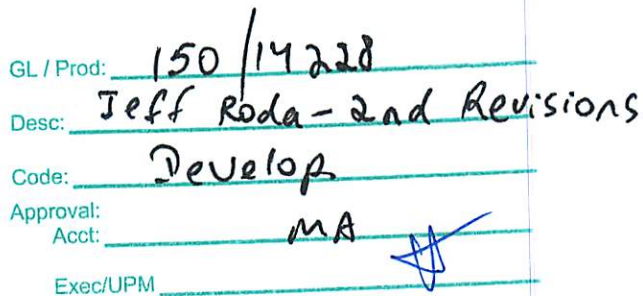 GL / Prod: 150/14228
Desc: Jeff Roda - 2nd Revisions
Code: Develop
Approval:
Acct: MA
Exec/UPM